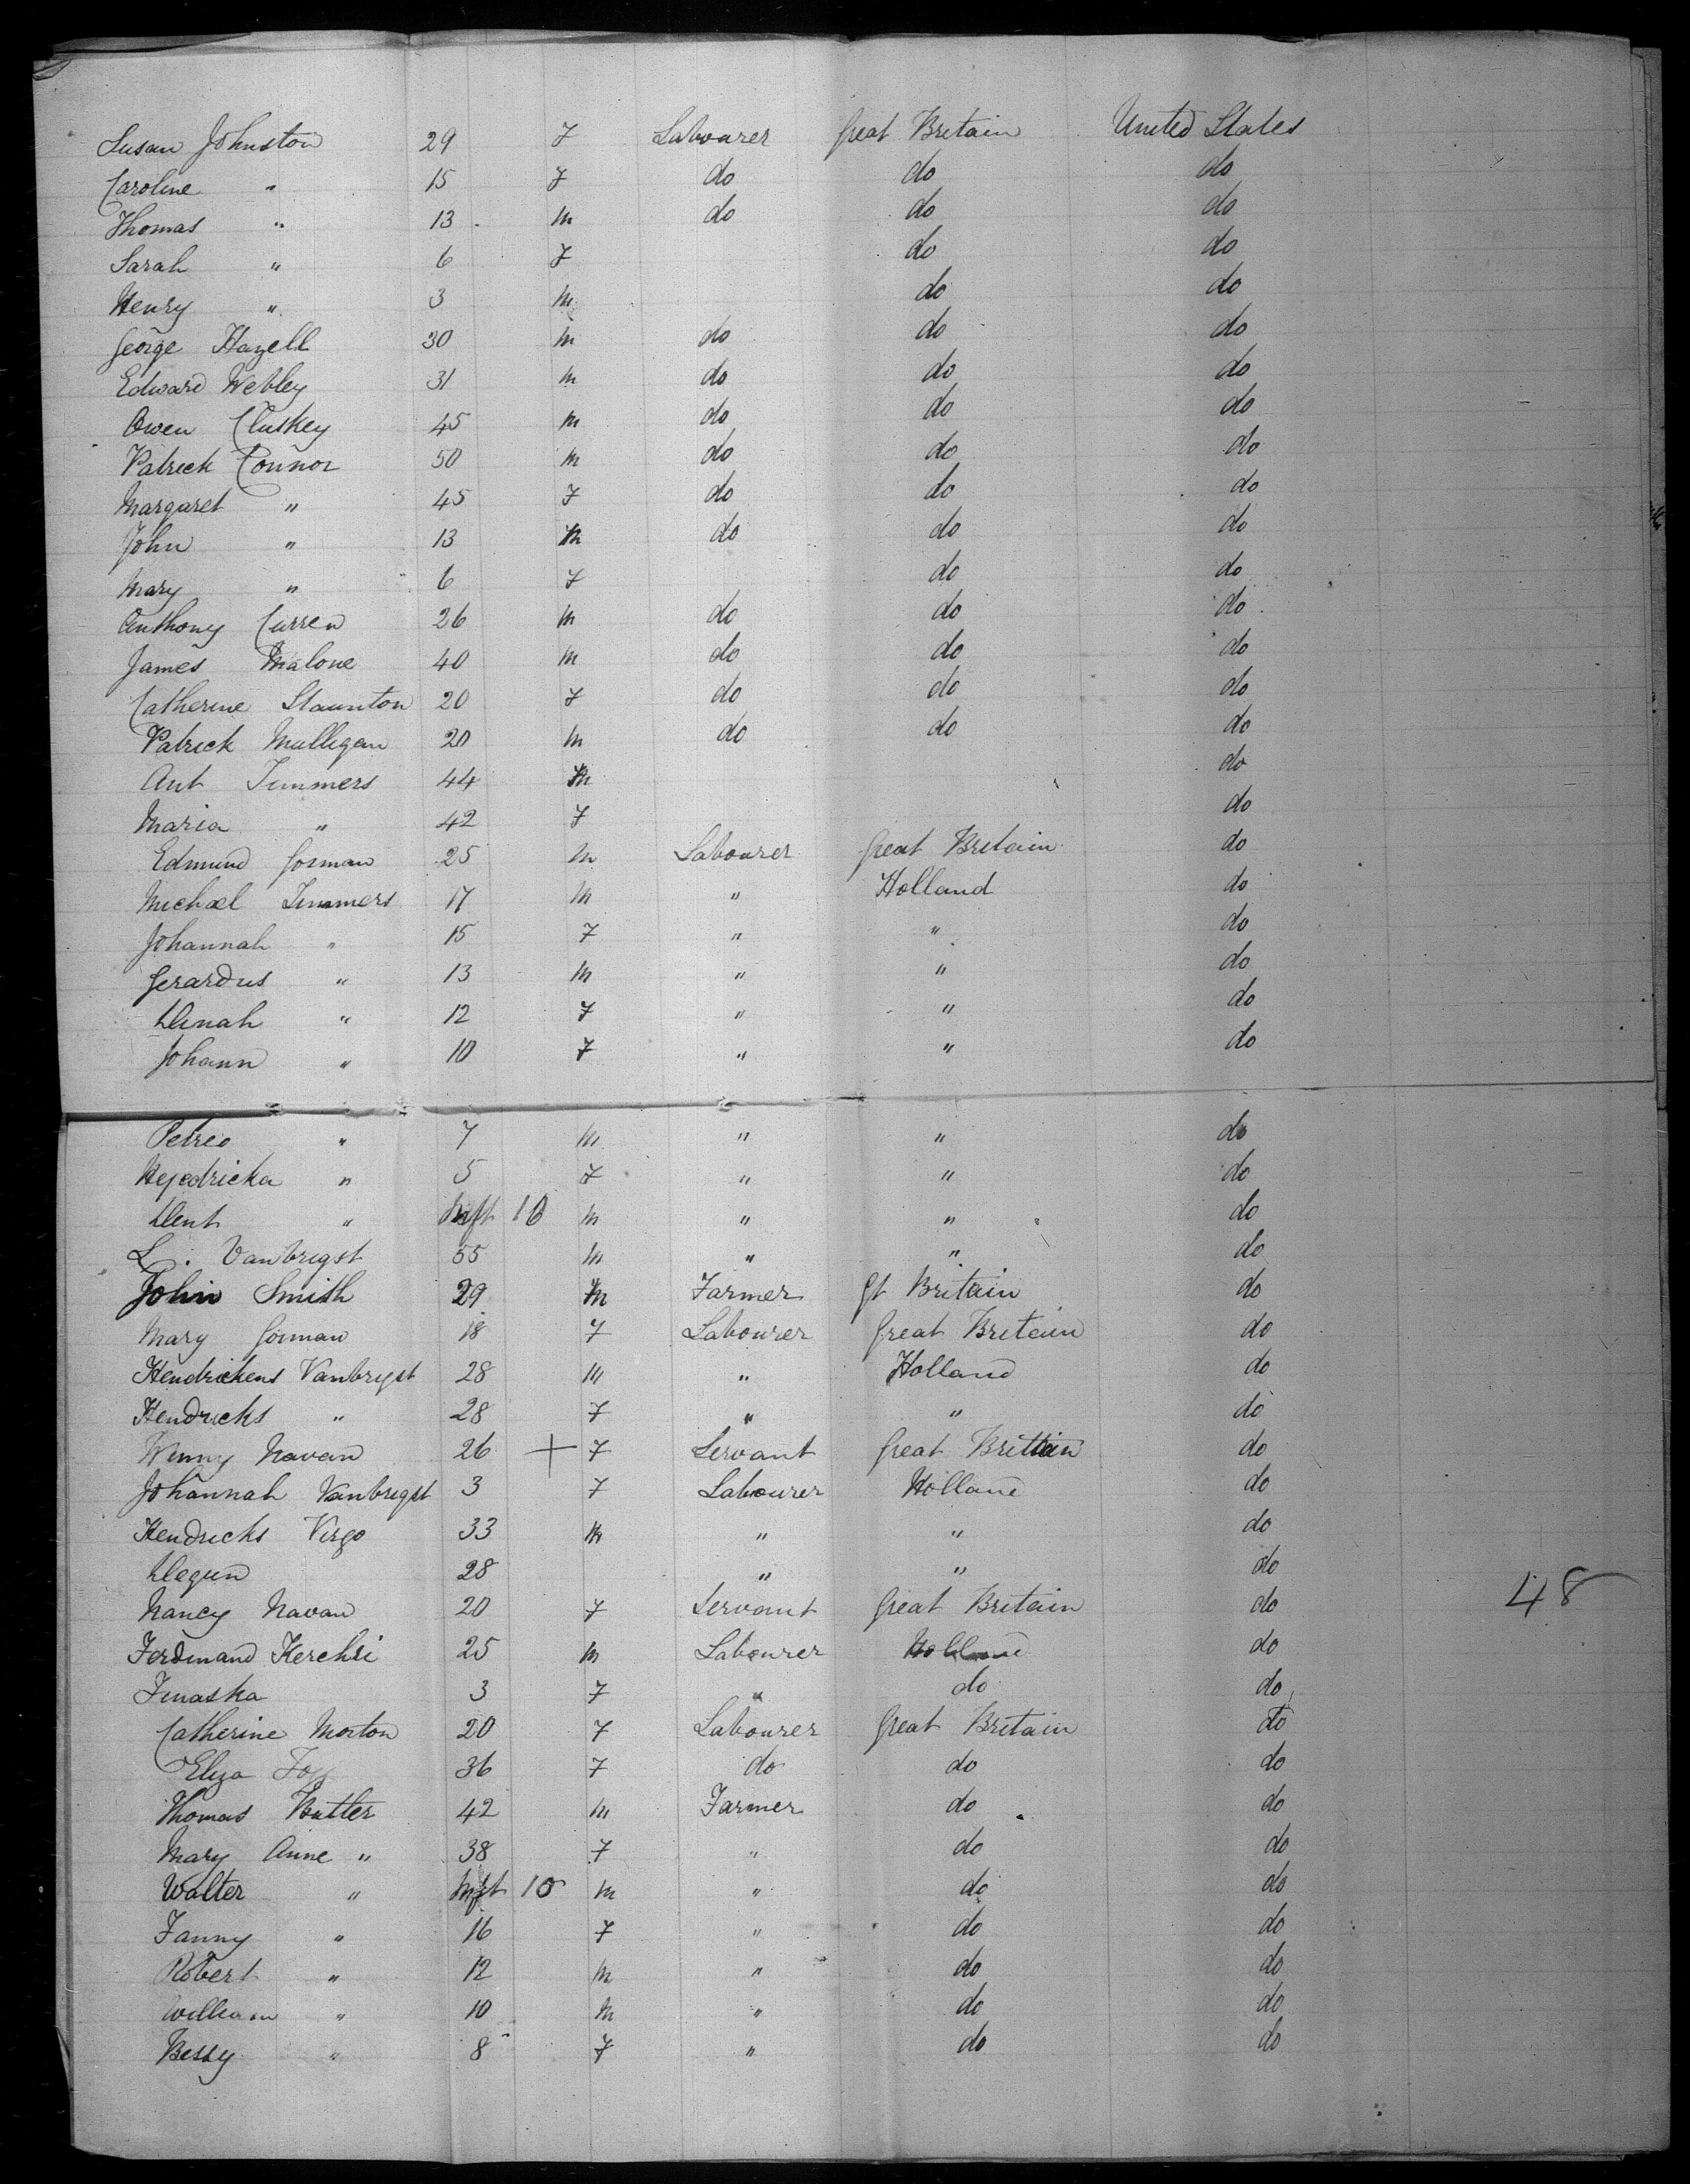 Susan Johnston 29 F Labourer Great Britain United States
Caroline " 15 F do do do
Thomas " 13 M do do do
Sarah " 6 F do do
Henry " 3 M do do
George Hazell 30 M do do do
Edward Webley 31 M do do do
Owen Cluskey 45 M do do do
Patrick Connor 50 M do do do
Margaret " 45 F do do do
John " 13 M do do do
Mary " 6 F do do
Anthony Curren 26 M do do do
James Malone 40 M do do do
Catherine Staunton 20 F do do do
Patrick Mulligan 20 M do do do
Ant Timmers 44 M do
Maria " 42 F do
Edmund Gorman 25 M Labourer Great Britain do
Michael Timmers 17 M " Holland do
Johannah " 15 F " " do
Gerardus " 13 M " " do
" 12 F " " do
Johann " 10 F " " do
" 7 M " " do
" 5 F " " do
" Inft 10 M " " do
L. Vanbrigst 55 M " " do
John Smith 29 M Farmer Gt Britain do
Mary Gorman 18 F Labourer Great Britain do
Hendrickens Vanbrigst 28 M " Holland do
Hendricks " 28 F " " do
Winny Navan 26 + F Servant Great Brittain do
Johannah Vanbrigst 3 F Labourer Holland do
Hendricks Virgo 33 M " " do
28 " " do
Nancy Navan 20 F Servant Great Britain do 48
Ferdinand 25 M Labourer Holland do
3 F " do do
Catherine Morton 20 F Labourer Great Britain do
Eliza Foy 36 F do do do
Thomas Butler 42 M Farmer do do
Mary Anne " 38 F " do do
Walter " Inft 10 M " do do
Fanny " 16 F " do do
Robert " 12 M " do do
William " 10 M " do do
Bessy " 8 F " do do